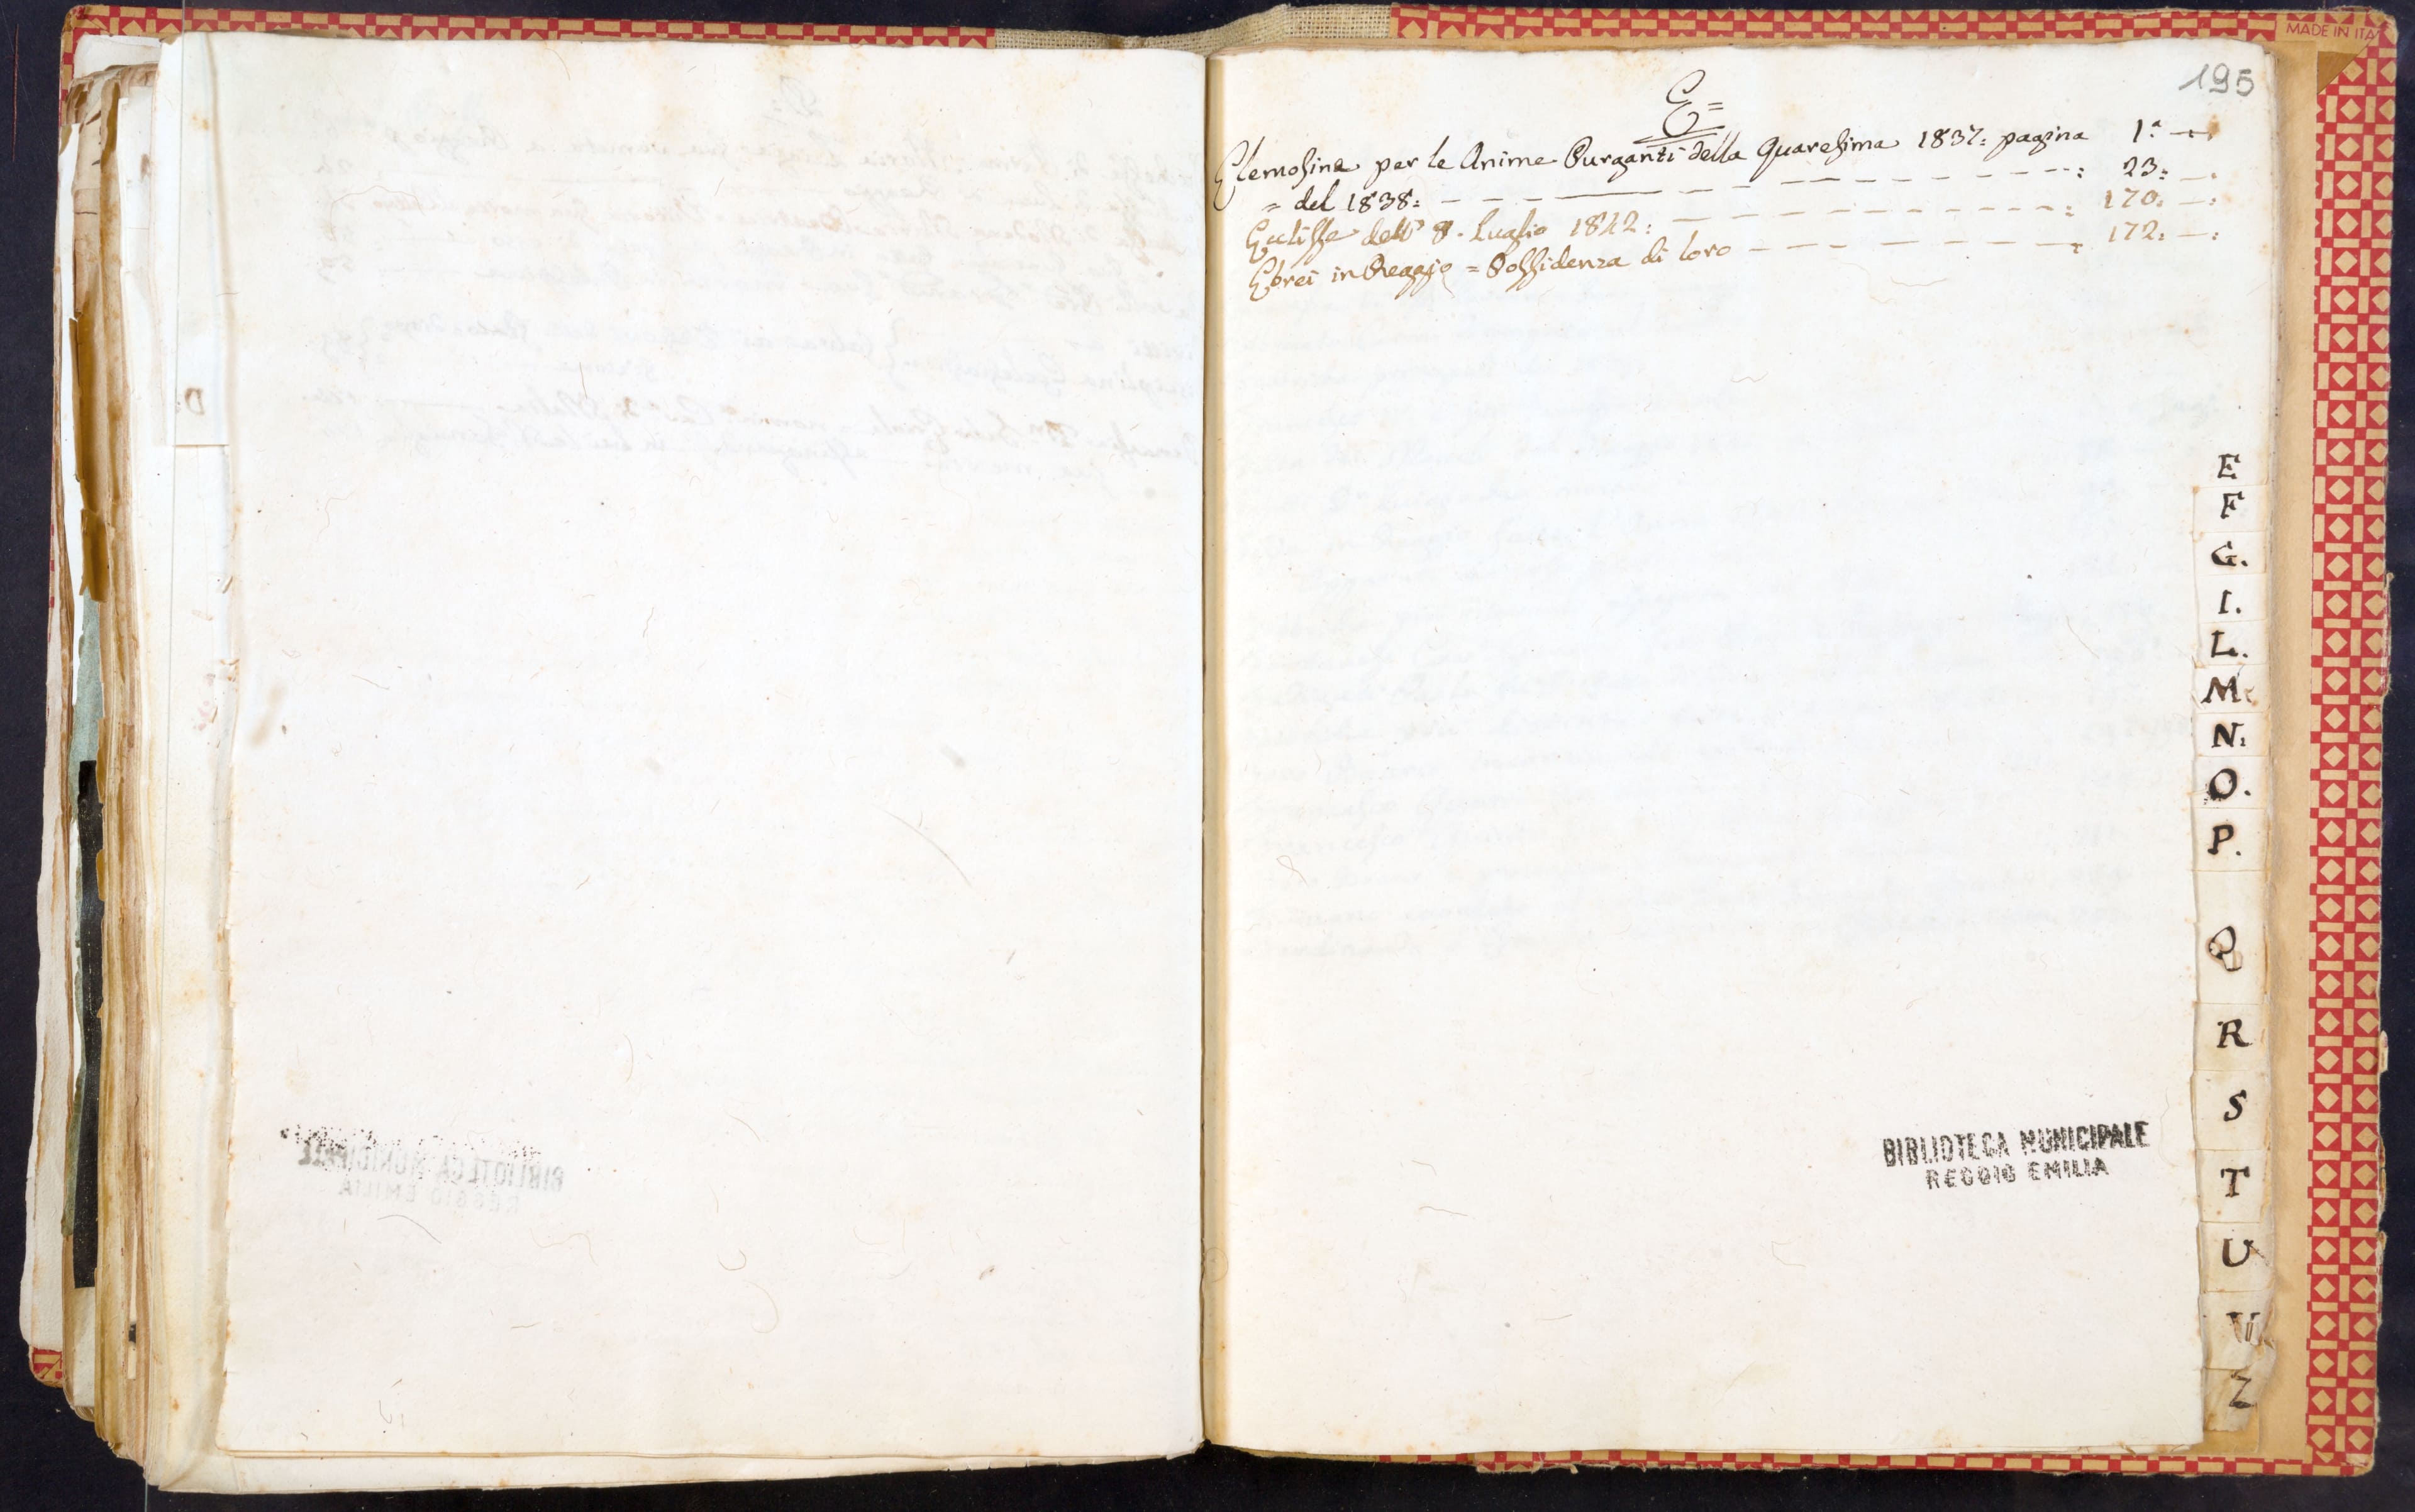 MADE IN ITA
195
E=
Elemosina per le Anime Purganti della Quaresima 1837: pagina 1.ª
= del 1838: 23:
Eclisse dell' 8. Luglio 1842: 170:
Ebrei in Reggio = Possidenza di loro 172:
D:
E
F
G.
I.
L.
M
N:
O.
P.
Q
R
S
T
U
V
Z
BIBLIOTECA MUNICIPALE
REGGIO EMILIA